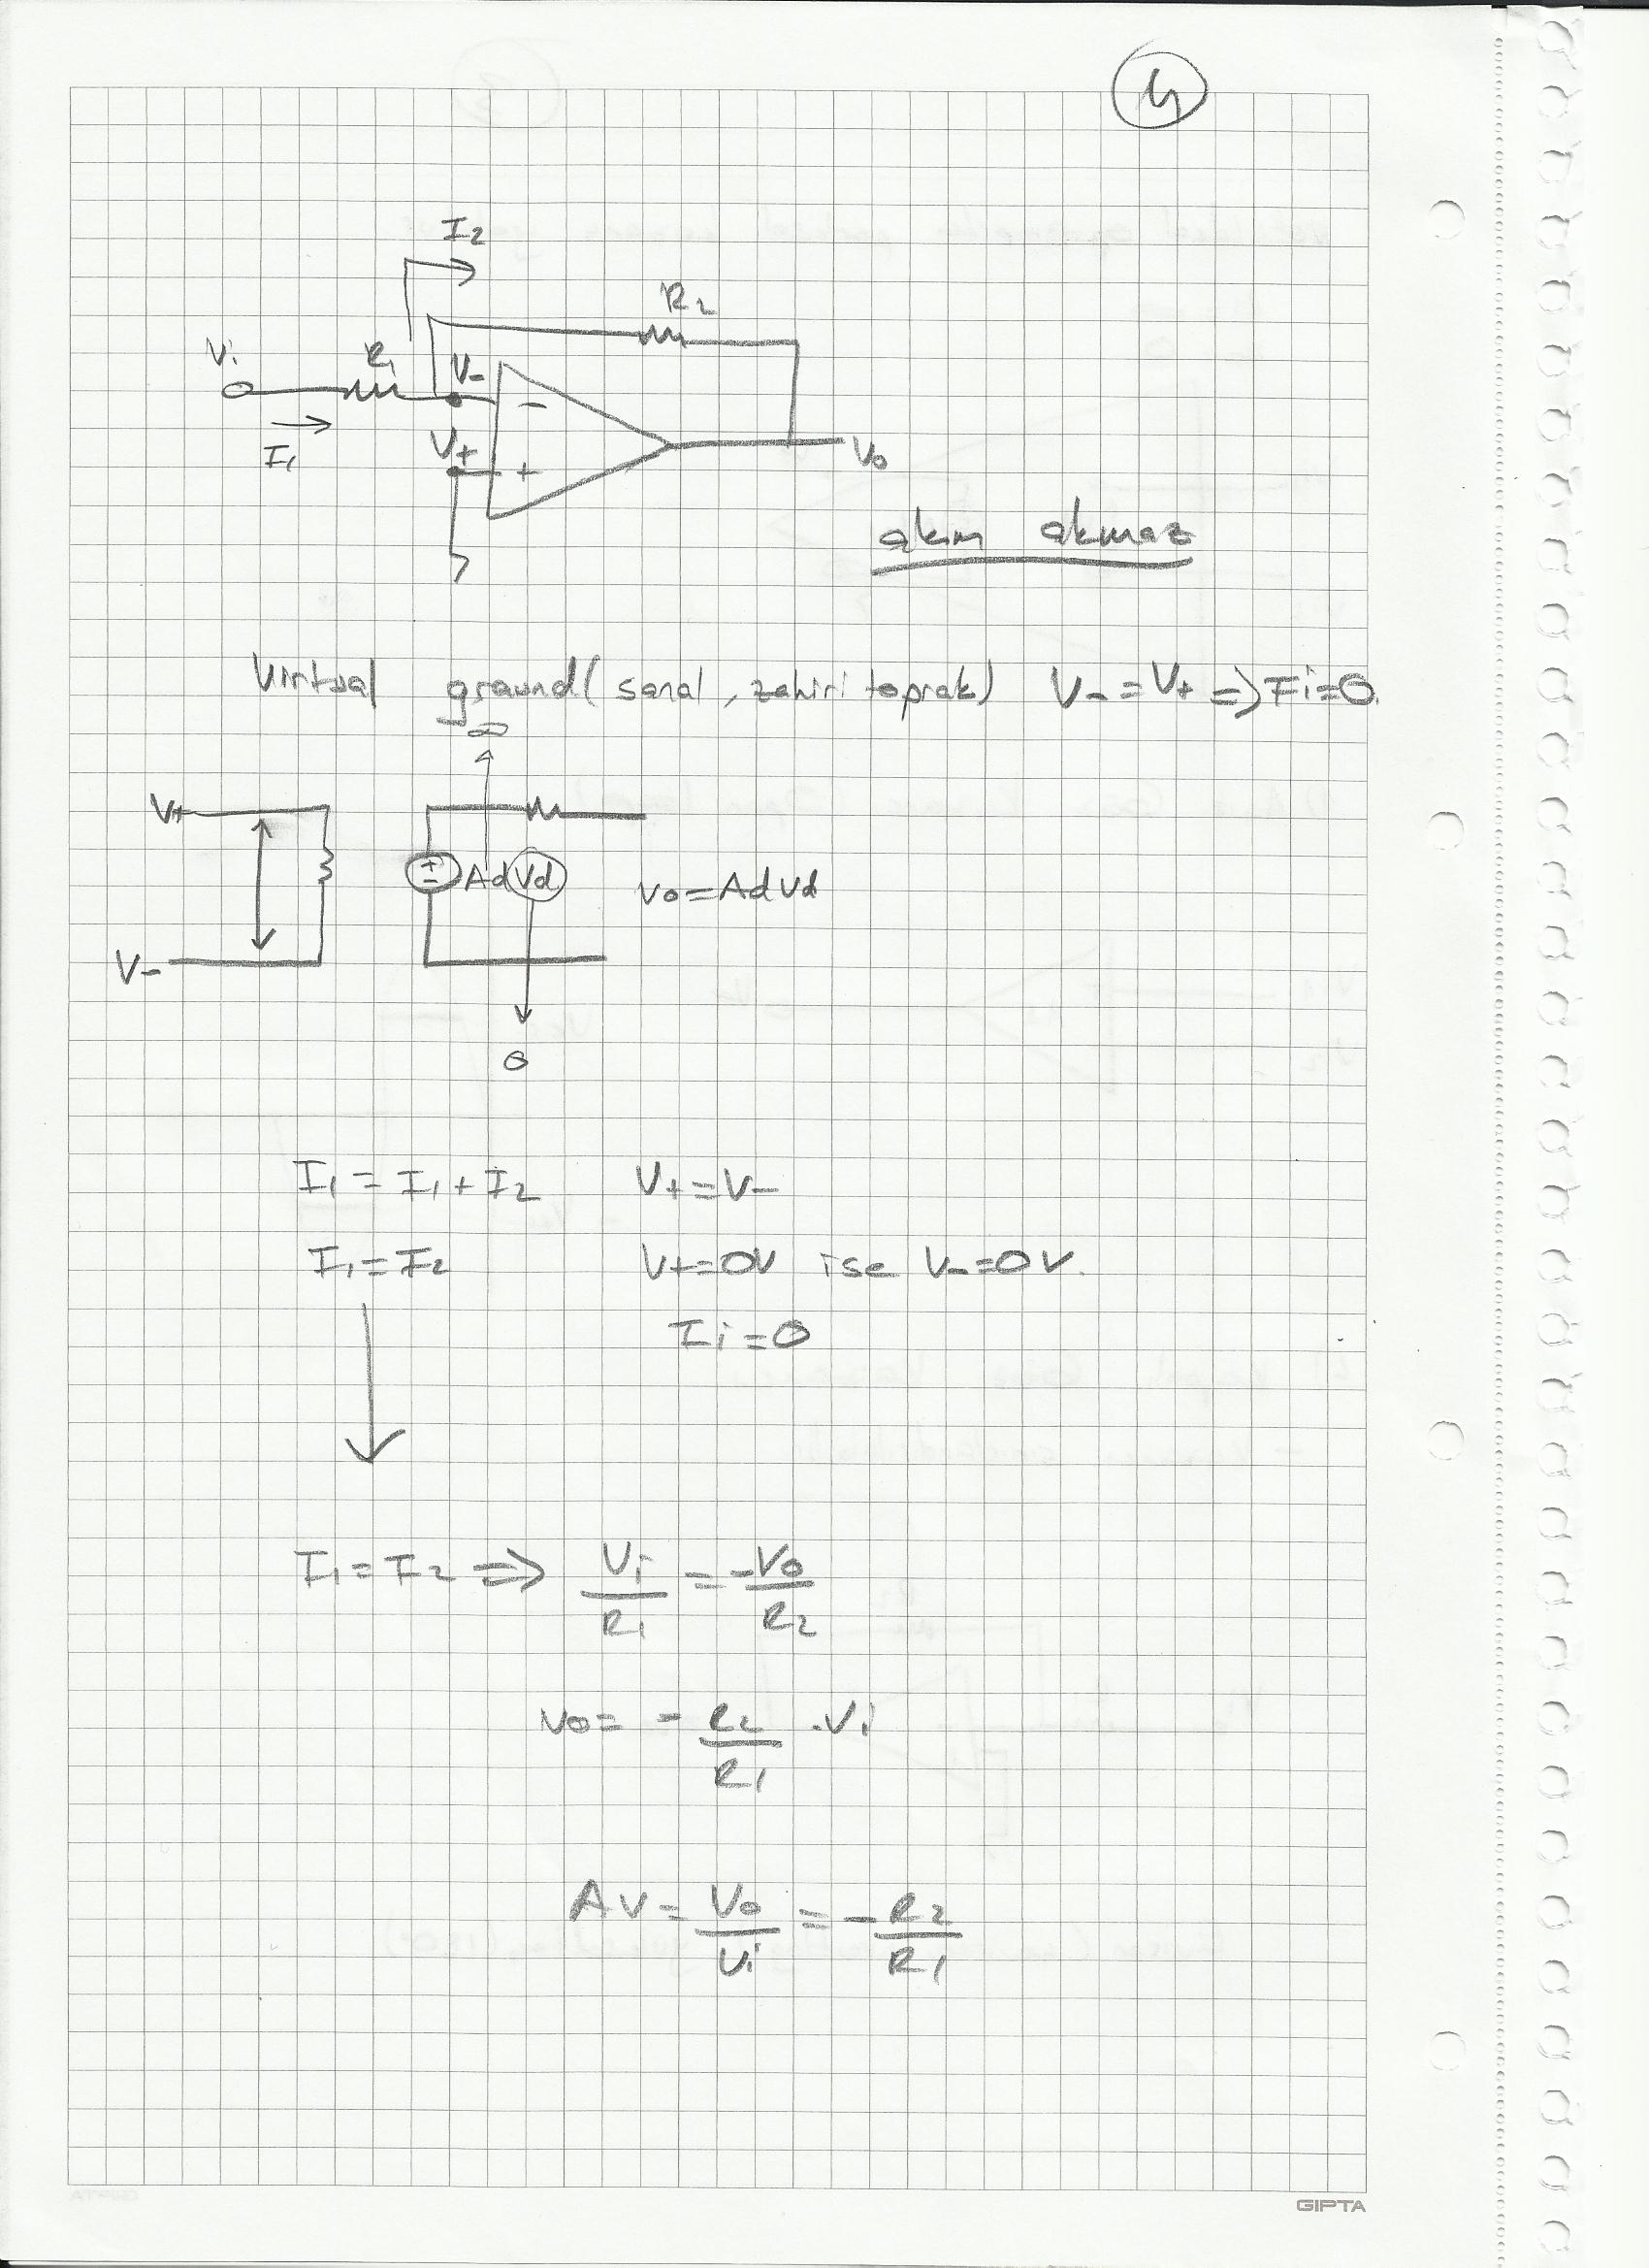 4
I2
R2
Vi R1 V-
I1 V+ - + Vo
akım akmaz
Virtual ground (sanal, zahiri toprak) V- = V+ => Ii=0.
∞
V+
± Ad Vd Vo = Ad Vd
V-
0
I1 = I1 + I2 V+ = V-
I1 = I2 V+ = 0V ise V- = 0V.
Ii = 0
I1 = I2 => Vi/R1 = -Vo/R2
Vo = - R2/R1 . Vi
AV = Vo/Vi = - R2/R1
GIPTA